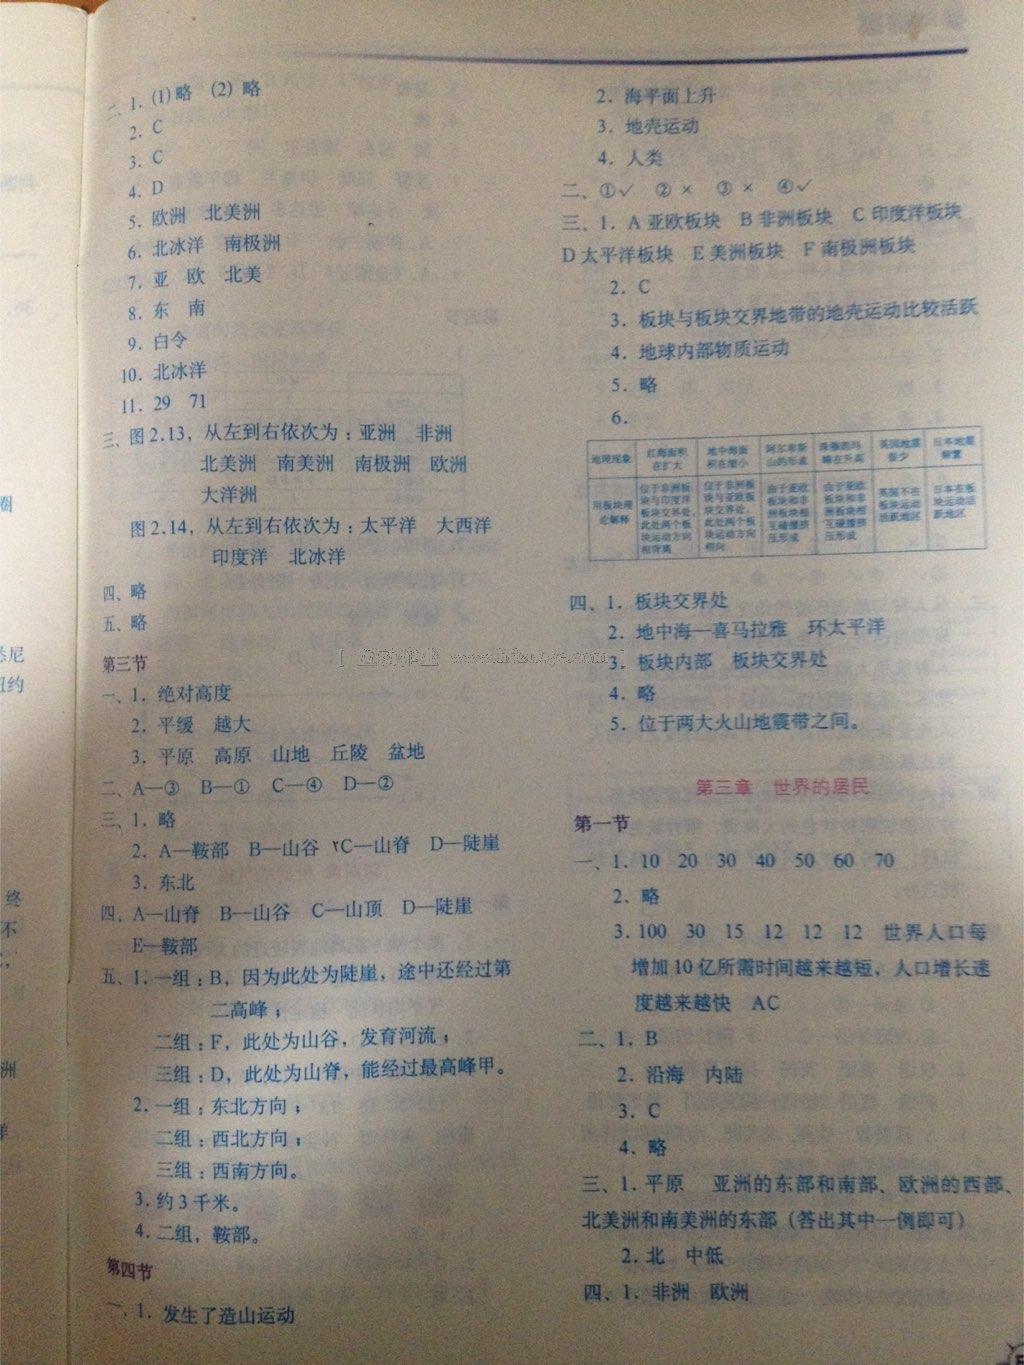 二、1. (1)略 (2) 略
2. C
3. C
4. D
5. 欧洲 北美洲
6. 北冰洋 南极洲
7. 亚 欧 北美
8. 东 南
9. 白令
10. 北冰洋
11. 29 71
三、图 2.13，从左到右依次为：亚洲 非洲
北美洲 南美洲 南极洲 欧洲
大洋洲
图 2.14，从左到右依次为：太平洋 大西洋
印度洋 北冰洋
四、略
五、略
第三节
一、1. 绝对高度
2. 平缓 越大
3. 平原 高原 山地 丘陵 盆地
二、A—③ B—① C—④ D—②
三、1. 略
2. A—鞍部 B—山谷 C—山脊 D—陡崖
3. 东北
四、A—山脊 B—山谷 C—山顶 D—陡崖
E—鞍部
五、1. 一组：B，因为此处为陡崖，途中还经过第
二高峰；
二组：F，此处为山谷，发育河流；
三组：D，此处为山脊，能经过最高峰甲。
2. 一组：东北方向；
二组：西北方向；
三组：西南方向。
3. 约 3 千米。
4. 二组，鞍部。
第四节
一、1. 发生了造山运动
2. 海平面上升
3. 地壳运动
4. 人类
二、①✓ ②× ③× ④✓
三、1. A 亚欧板块 B 非洲板块 C 印度洋板块
D 太平洋板块 E 美洲板块 F 南极洲板块
2. C
3. 板块与板块交界地带的地壳运动比较活跃
4. 地球内部物质运动
5. 略
6.
地理现象 红海面积在扩大 地中海面积在缩小 阿尔卑斯山的形成 珠穆朗玛峰在升高 英国地震很少 日本地震频繁
用板块理论解释 位于非洲板块与印度洋板块交界处，此处两个板块运动方向相背离 位于非洲板块与亚欧板块交界处，此处两个板块运动方向相向 由于亚欧板块和非洲板块相互碰撞挤压形成 由于亚欧板块和印度洋板块相互碰撞挤压形成 英国不在板块运动活跃地区 日本在板块运动活跃地区
四、1. 板块交界处
2. 地中海—喜马拉雅 环太平洋
3. 板块内部 板块交界处
4. 略
5. 位于两大火山地震带之间。
第三章 世界的居民
第一节
一、1. 10 20 30 40 50 60 70
2. 略
3. 100 30 15 12 12 12 世界人口每
增加 10 亿所需时间越来越短，人口增长速
度越来越快 AC
二、1. B
2. 沿海 内陆
3. C
4. 略
三、1. 平原 亚洲的东部和南部、欧洲的西部、
北美洲和南美洲的东部（答出其中一例即可）
2. 北 中低
四、1. 非洲 欧洲